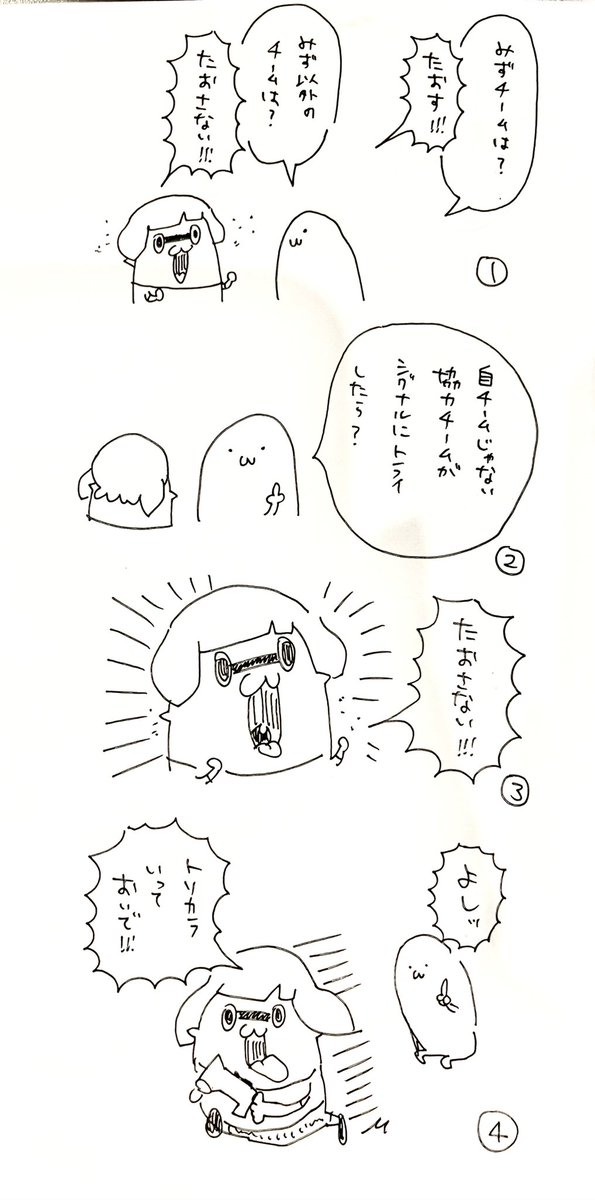 みずチームは?
たおす!!!
みず以外の
チームは?
たおさない!!!
①
自チームじゃない
協力チームが
シグナルにトライ
したら?
②
たおさない!!!
③
よしッ
トリカラ
いって
おいで!!!
④